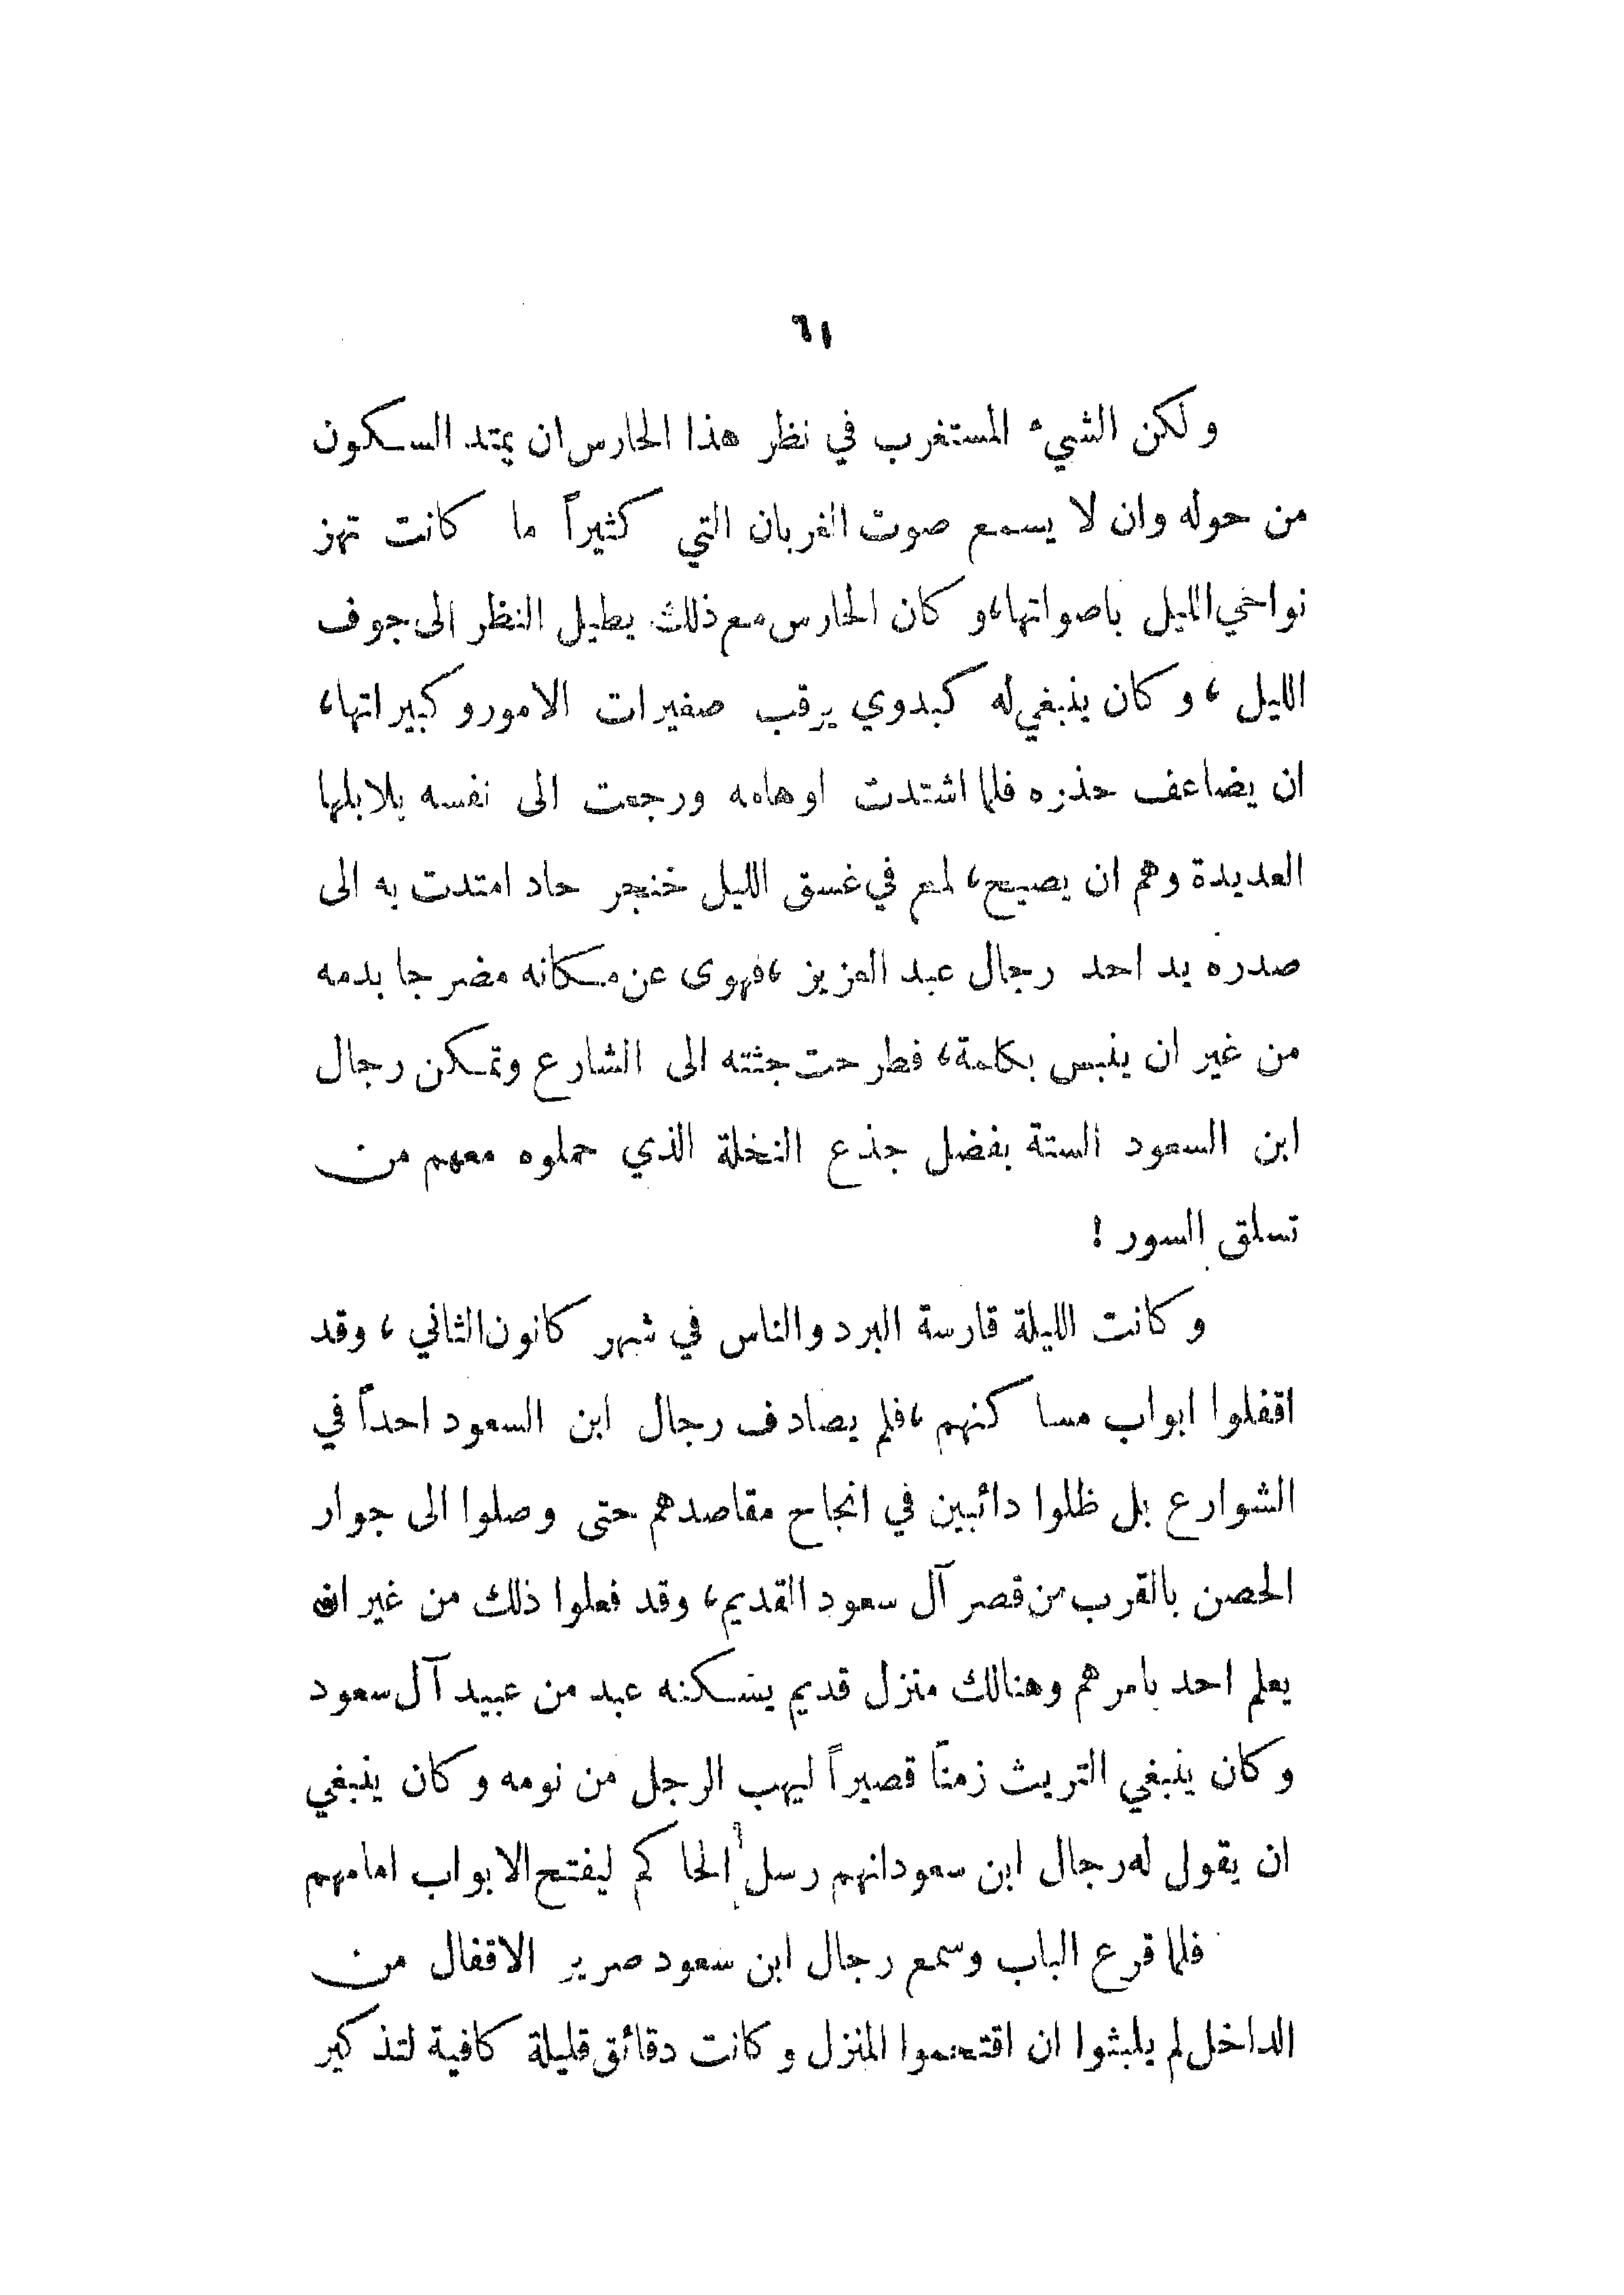 ٦١
ولكن الشيء المستغرب في نظر هذا الحارس ان يمتد السكون
من حوله وان لا يسمع صوت الغربان التي كثيراً ما كانت تهز
نواحي الليل باصواتها، وكان الحارس مع ذلك يطيل النظر الى جوف
الليل ، وكان ينبغي له كبدوي يرقب صغيرات الامور وكبيراتها،
ان يضاعف حذره فلما اشتدت اوهامه ورجعت الى نفسه بلابلها
العديدة وهم ان يصيح، لمع في غسق الليل خنجر حاد امتدت به الى
صدره يد احد رجال عبد العزيز ، فهوى عن مكانه مضرجا بدمه
من غير ان ينبس بكلمة، فطرحت جثته الى الشارع وتمكن رجال
ابن السعود الستة بفضل جذع النخلة الذي حملوه معهم من
تسلق السور !
وكانت الليلة قارسة البرد والناس في شهر كانون الثاني ، وقد
اقفلوا ابواب مساكنهم ، فلم يصادف رجال ابن السعود احداً في
الشوارع بل ظلوا دائبين في انجاح مقاصدهم حتى وصلوا الى جوار
الحصن بالقرب من قصر آل سعود القديم، وقد فعلوا ذلك من غير ان
يعلم احد بامرهم وهنالك منزل قديم يسكنه عبد من عبيد آل سعود
وكان ينبغي التريث زمناً قصيراً ليهب الرجل من نومه وكان ينبغي
ان يقول له رجال ابن سعود انهم رسل الحاكم ليفتح الابواب امامهم
فلما قرع الباب وسمع رجال ابن سعود صرير الاقفال من
الداخل لم يلبثوا ان اقتحموا المنزل وكانت دقائق قليلة كافية لتذكير